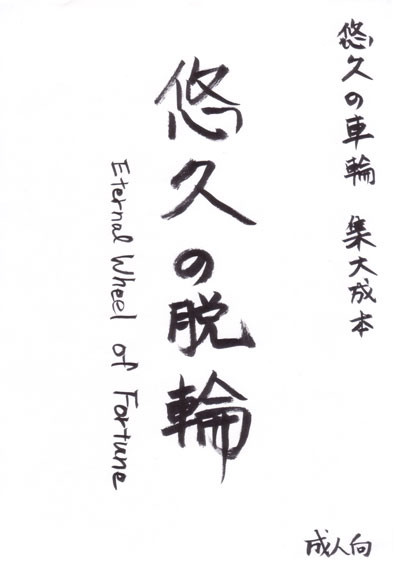 悠久の車輪　集大成本
悠久の脱輪
Eternal Wheel of Fortune
成人向